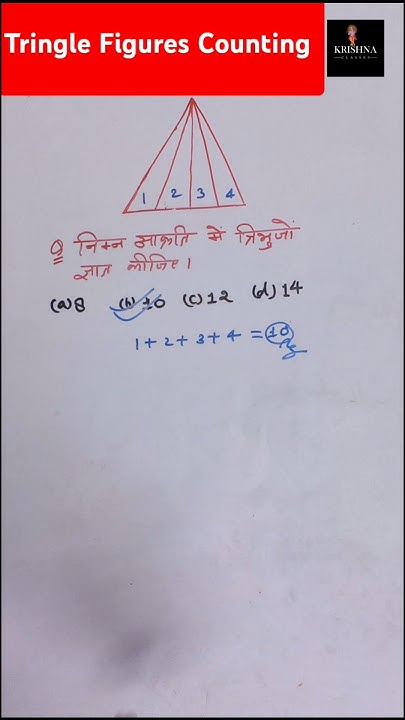 Tringle Figures Counting
KRISHNA
CLASSES
1 2 3 4
Q निम्न आकृति में त्रिभुजों
ज्ञात कीजिए।
(a) 8 (b) 10 (c) 12 (d) 14
1 + 2 + 3 + 4 = 10